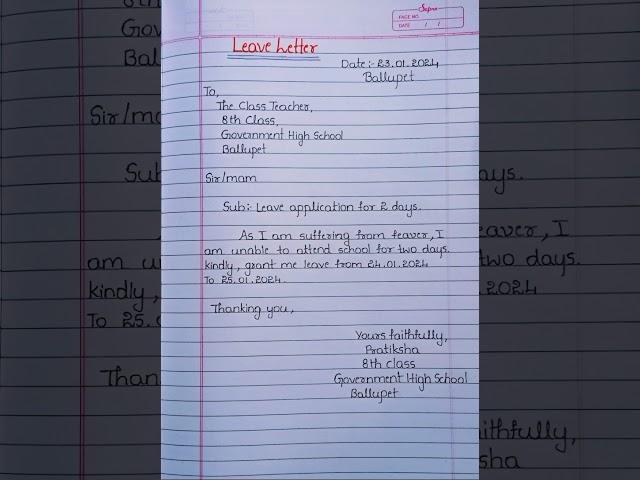 Supra
PAGE NO.
DATE / /
Leave Letter
Date:- 23.01.2024
Ballupet
To,
The Class Teacher,
8th Class,
Government High School
Ballupet
Sir/mam
Sub:- Leave application for 2 days.
As I am suffering from feaver, I
am unable to attend school for two days.
kindly, grant me leave from 24.01.2024
To 25.01.2024.
Thanking you,
Yours faithfully,
Pratiksha
8th class
Government High School
Ballupet